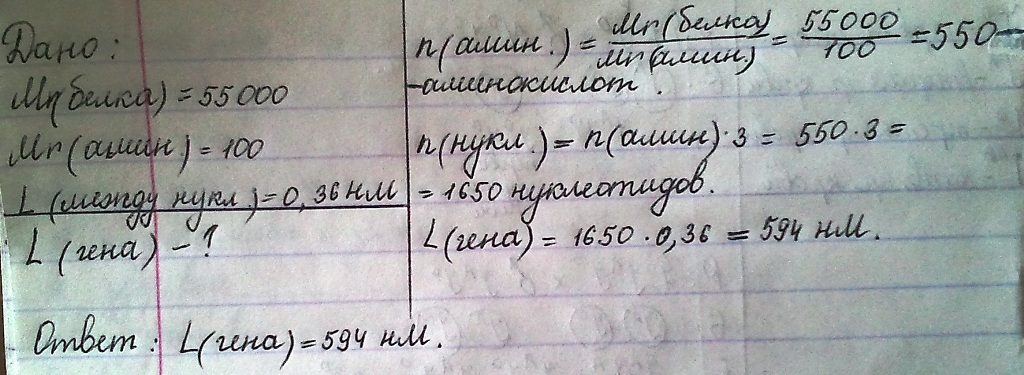 Дано:
Mr(белка) = 55000
Mr(амин.) = 100
L (между нукл.) = 0,36 нм
L (гена) - ?
n(амин.) = Mr(белка) / Mr(амин.) = 55000 / 100 = 550 -
- аминокислот.
n(нукл.) = n(амин) · 3 = 550 · 3 =
= 1650 нуклеотидов.
L(гена) = 1650 · 0,36 = 594 нм.
Ответ: L(гена) = 594 нм.